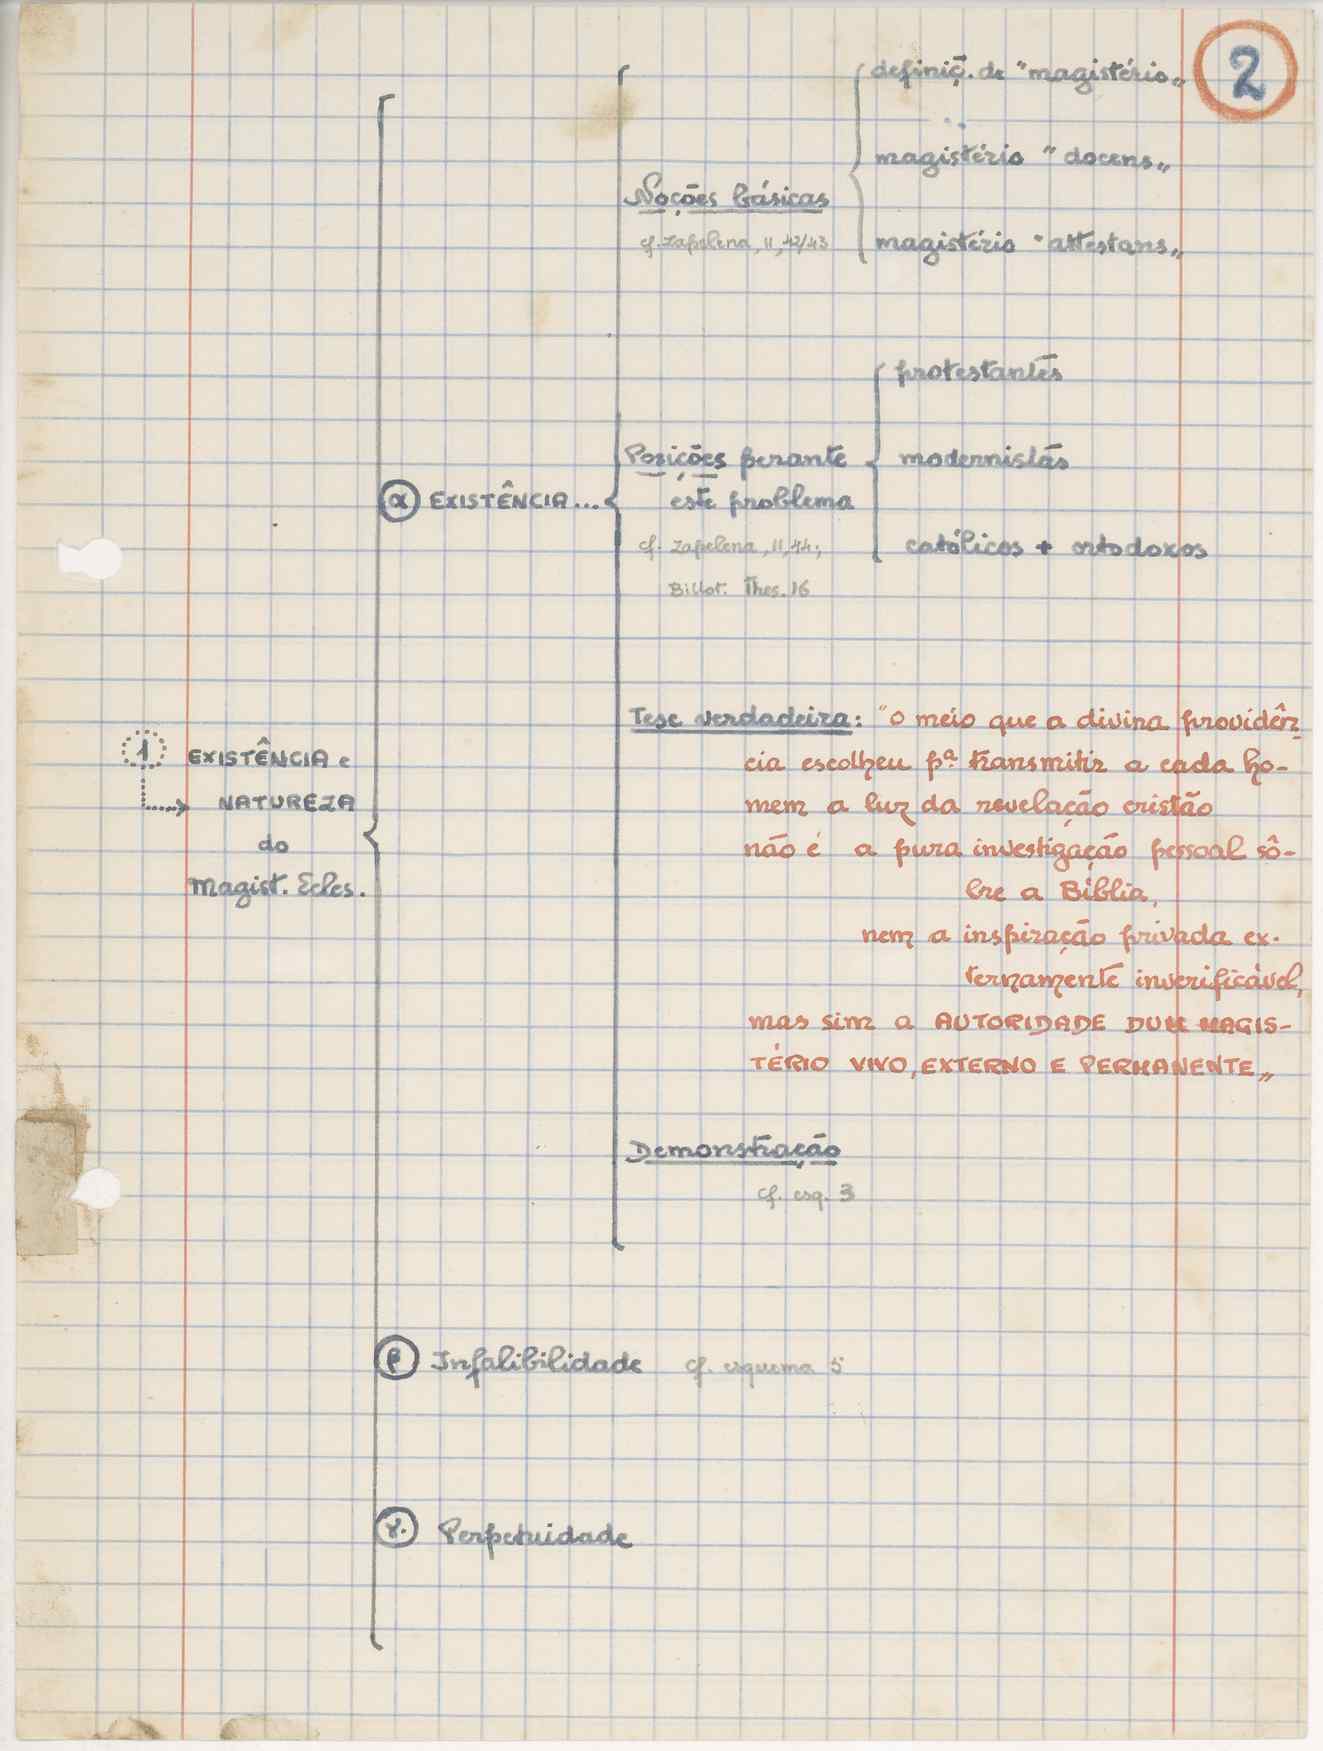 2
definiç. de "magistério„
magistério "docens„
Noções básicas
cf. Zapelena, II, 42/43
magistério "attestans„
protestantes
Posições perante
modernistas
α EXISTÊNCIA...
este problema
cf. Zapelena, II, 44;
católicos + ortodoxos
Billot. Thes. 16
Tese verdadeira: "O meio que a divina providên-
1 EXISTÊNCIA e
cia escolheu pª. transmitir a cada ho-
NATUREZA
mem a luz da revelação cristão
do
não é a pura investigação pessoal sô-
Magist. Ecles.
bre a Bíblia,
nem a inspiração privada ex-
ternamente inverificável,
mas sim a AUTORIDADE DUM MAGIS-
TÉRIO VIVO, EXTERNO E PERMANENTE„
Demonstração
cf. esq. 3
β Infalibilidade cf. esquema 5
γ. Perpetuidade